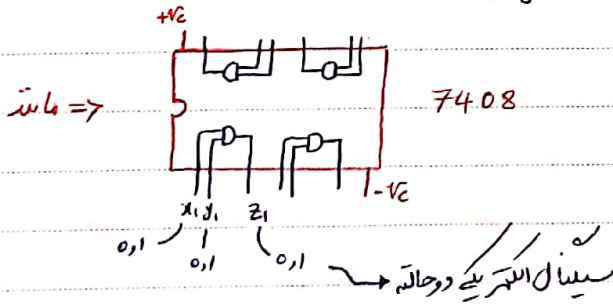 +Vc
مانند => 7408
-Vc
x₁ y₁ z₁
0,1 0,1 0,1
سیگنال الکتریکی دو حالته